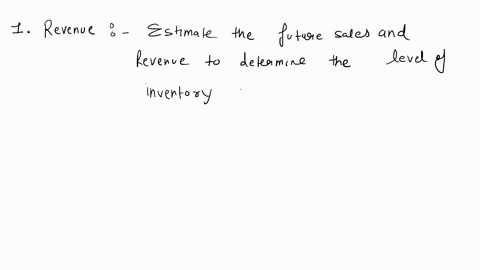 1. Revenue :- Estimate the future sales and
Revenue to determine the level of
inventory